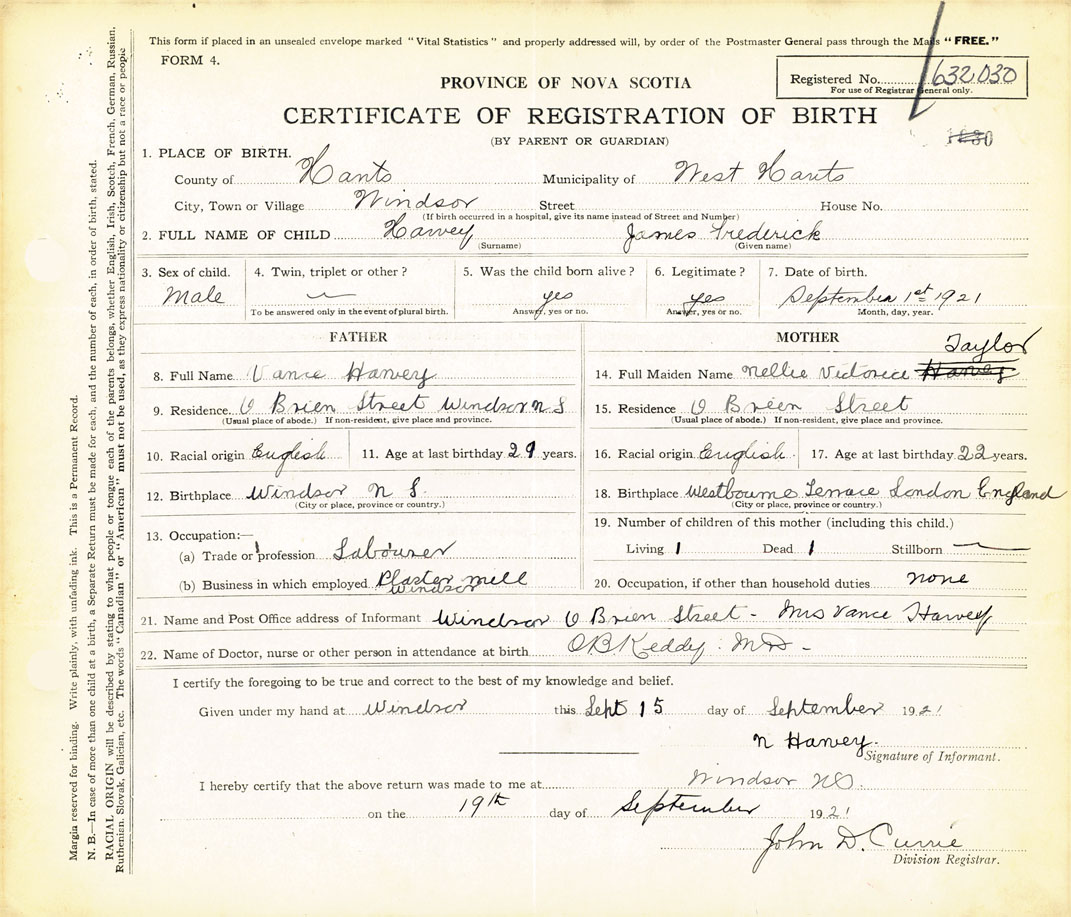 This form if placed in an unsealed envelope marked "Vital Statistics" and properly addressed will, by order of the Postmaster General pass through the Mails "FREE."
FORM 4.
Registered No. 632030
For use of Registrar General only.
PROVINCE OF NOVA SCOTIA
CERTIFICATE OF REGISTRATION OF BIRTH
(BY PARENT OR GUARDIAN)
1. PLACE OF BIRTH.
County of Hants Municipality of West Hants
City, Town or Village Windsor Street House No.
(If birth occurred in a hospital, give its name instead of Street and Number)
2. FULL NAME OF CHILD Harvey James Frederick
(Surname) (Given name)
3. Sex of child. 4. Twin, triplet or other? 5. Was the child born alive? 6. Legitimate? 7. Date of birth.
Male yes yes September 1st 1921
To be answered only in the event of plural birth. Answer, yes or no. Answer, yes or no. Month, day, year.
FATHER
8. Full Name Vance Harvey
9. Residence O Brien Street Windsor N S
(Usual place of abode.) If non-resident, give place and province.
10. Racial origin English 11. Age at last birthday 29 years.
12. Birthplace Windsor N S.
(City or place, province or country.)
13. Occupation:—
(a) Trade or profession Labourer
(b) Business in which employed Plaster mill
Windsor
MOTHER
Taylor
14. Full Maiden Name Nellie Victoria Harvey
15. Residence O Brien Street
(Usual place of abode.) If non-resident, give place and province.
16. Racial origin English 17. Age at last birthday 22 years.
18. Birthplace Westbourne Terrace London England
(City or place, province or country.)
19. Number of children of this mother (including this child.)
Living 1 Dead 1 Stillborn
20. Occupation, if other than household duties none
21. Name and Post Office address of Informant Windsor O Brien Street - Mrs Vance Harvey
22. Name of Doctor, nurse or other person in attendance at birth O B Keddy. M D -
I certify the foregoing to be true and correct to the best of my knowledge and belief.
Given under my hand at Windsor this Sept 15 day of September 1921
N Harvey.
Signature of Informant.
I hereby certify that the above return was made to me at Windsor NS.
on the 19th day of September 1921
John D. Currie
Division Registrar.
Margin reserved for binding. Write plainly, with unfading ink. This is a Permanent Record.
N. B.—In case of more than one child at a birth, a Separate Return must be made for each, and the number of each, in order of birth, stated.
RACIAL ORIGIN will be described by stating to what people or tongue each of the parents belongs, whether English, Irish, Scotch, French, German, Russian,
Ruthenian, Slovak, Galician, etc. The words "Canadian" or "American" must not be used, as they express nationality or citizenship but not a race or people